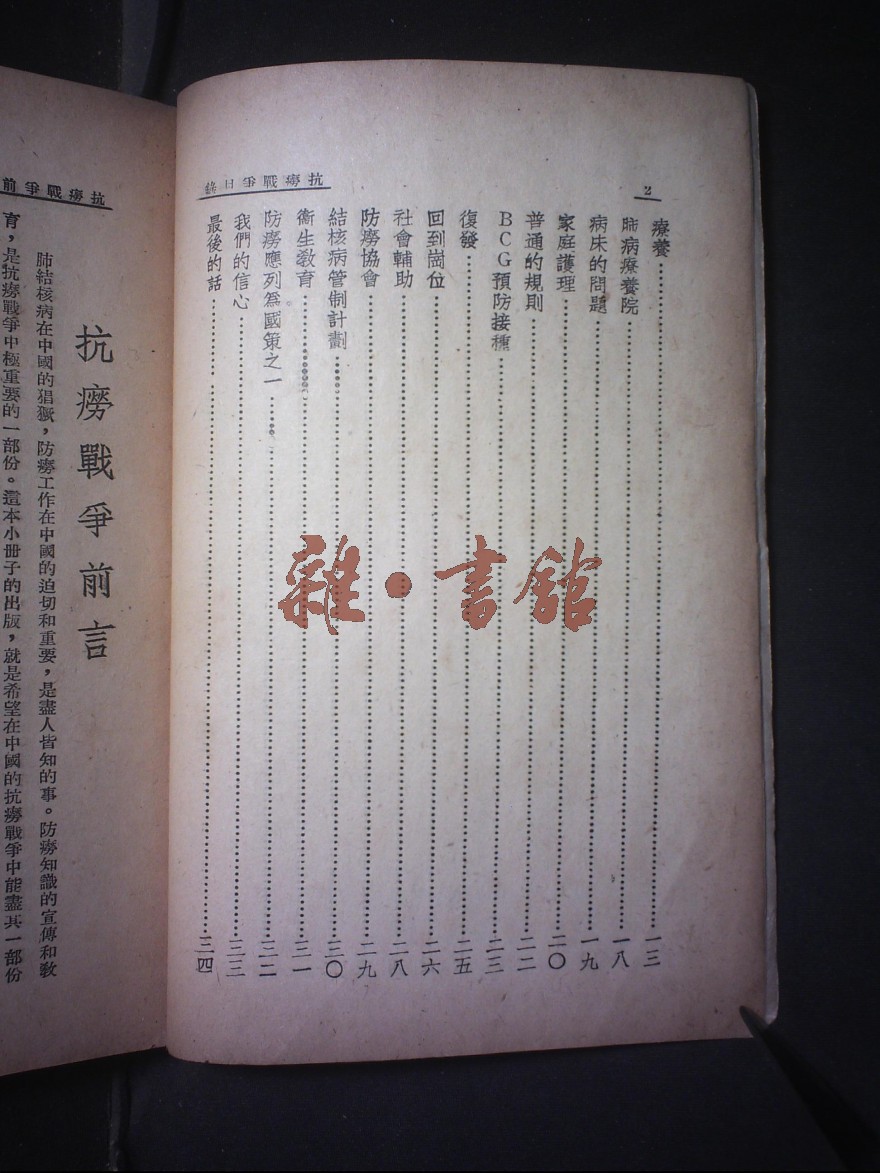 2
抗癆戰爭目錄
療養……一三
肺病療養院……一八
病床的問題……一九
家庭護理……二〇
普通的規則……二二
BCG預防接種……二三
復發……二五
回到崗位……二六
社會輔助……二八
防癆協會……二九
結核病管制計劃……三〇
衞生敎育……三一
防癆應列爲國策之一……三二
我們的信心……三三
最後的話……三四
雜·書館
抗癆戰爭前
抗癆戰爭前言
肺結核病在中國的猖獗，防癆工作在中國的迫切和重要，是盡人皆知的事。防癆知識的宣傳和敎
育，是抗癆戰爭中極重要的一部份。這本小册子的出版，就是希望在中國的抗癆戰爭中能盡其一部份